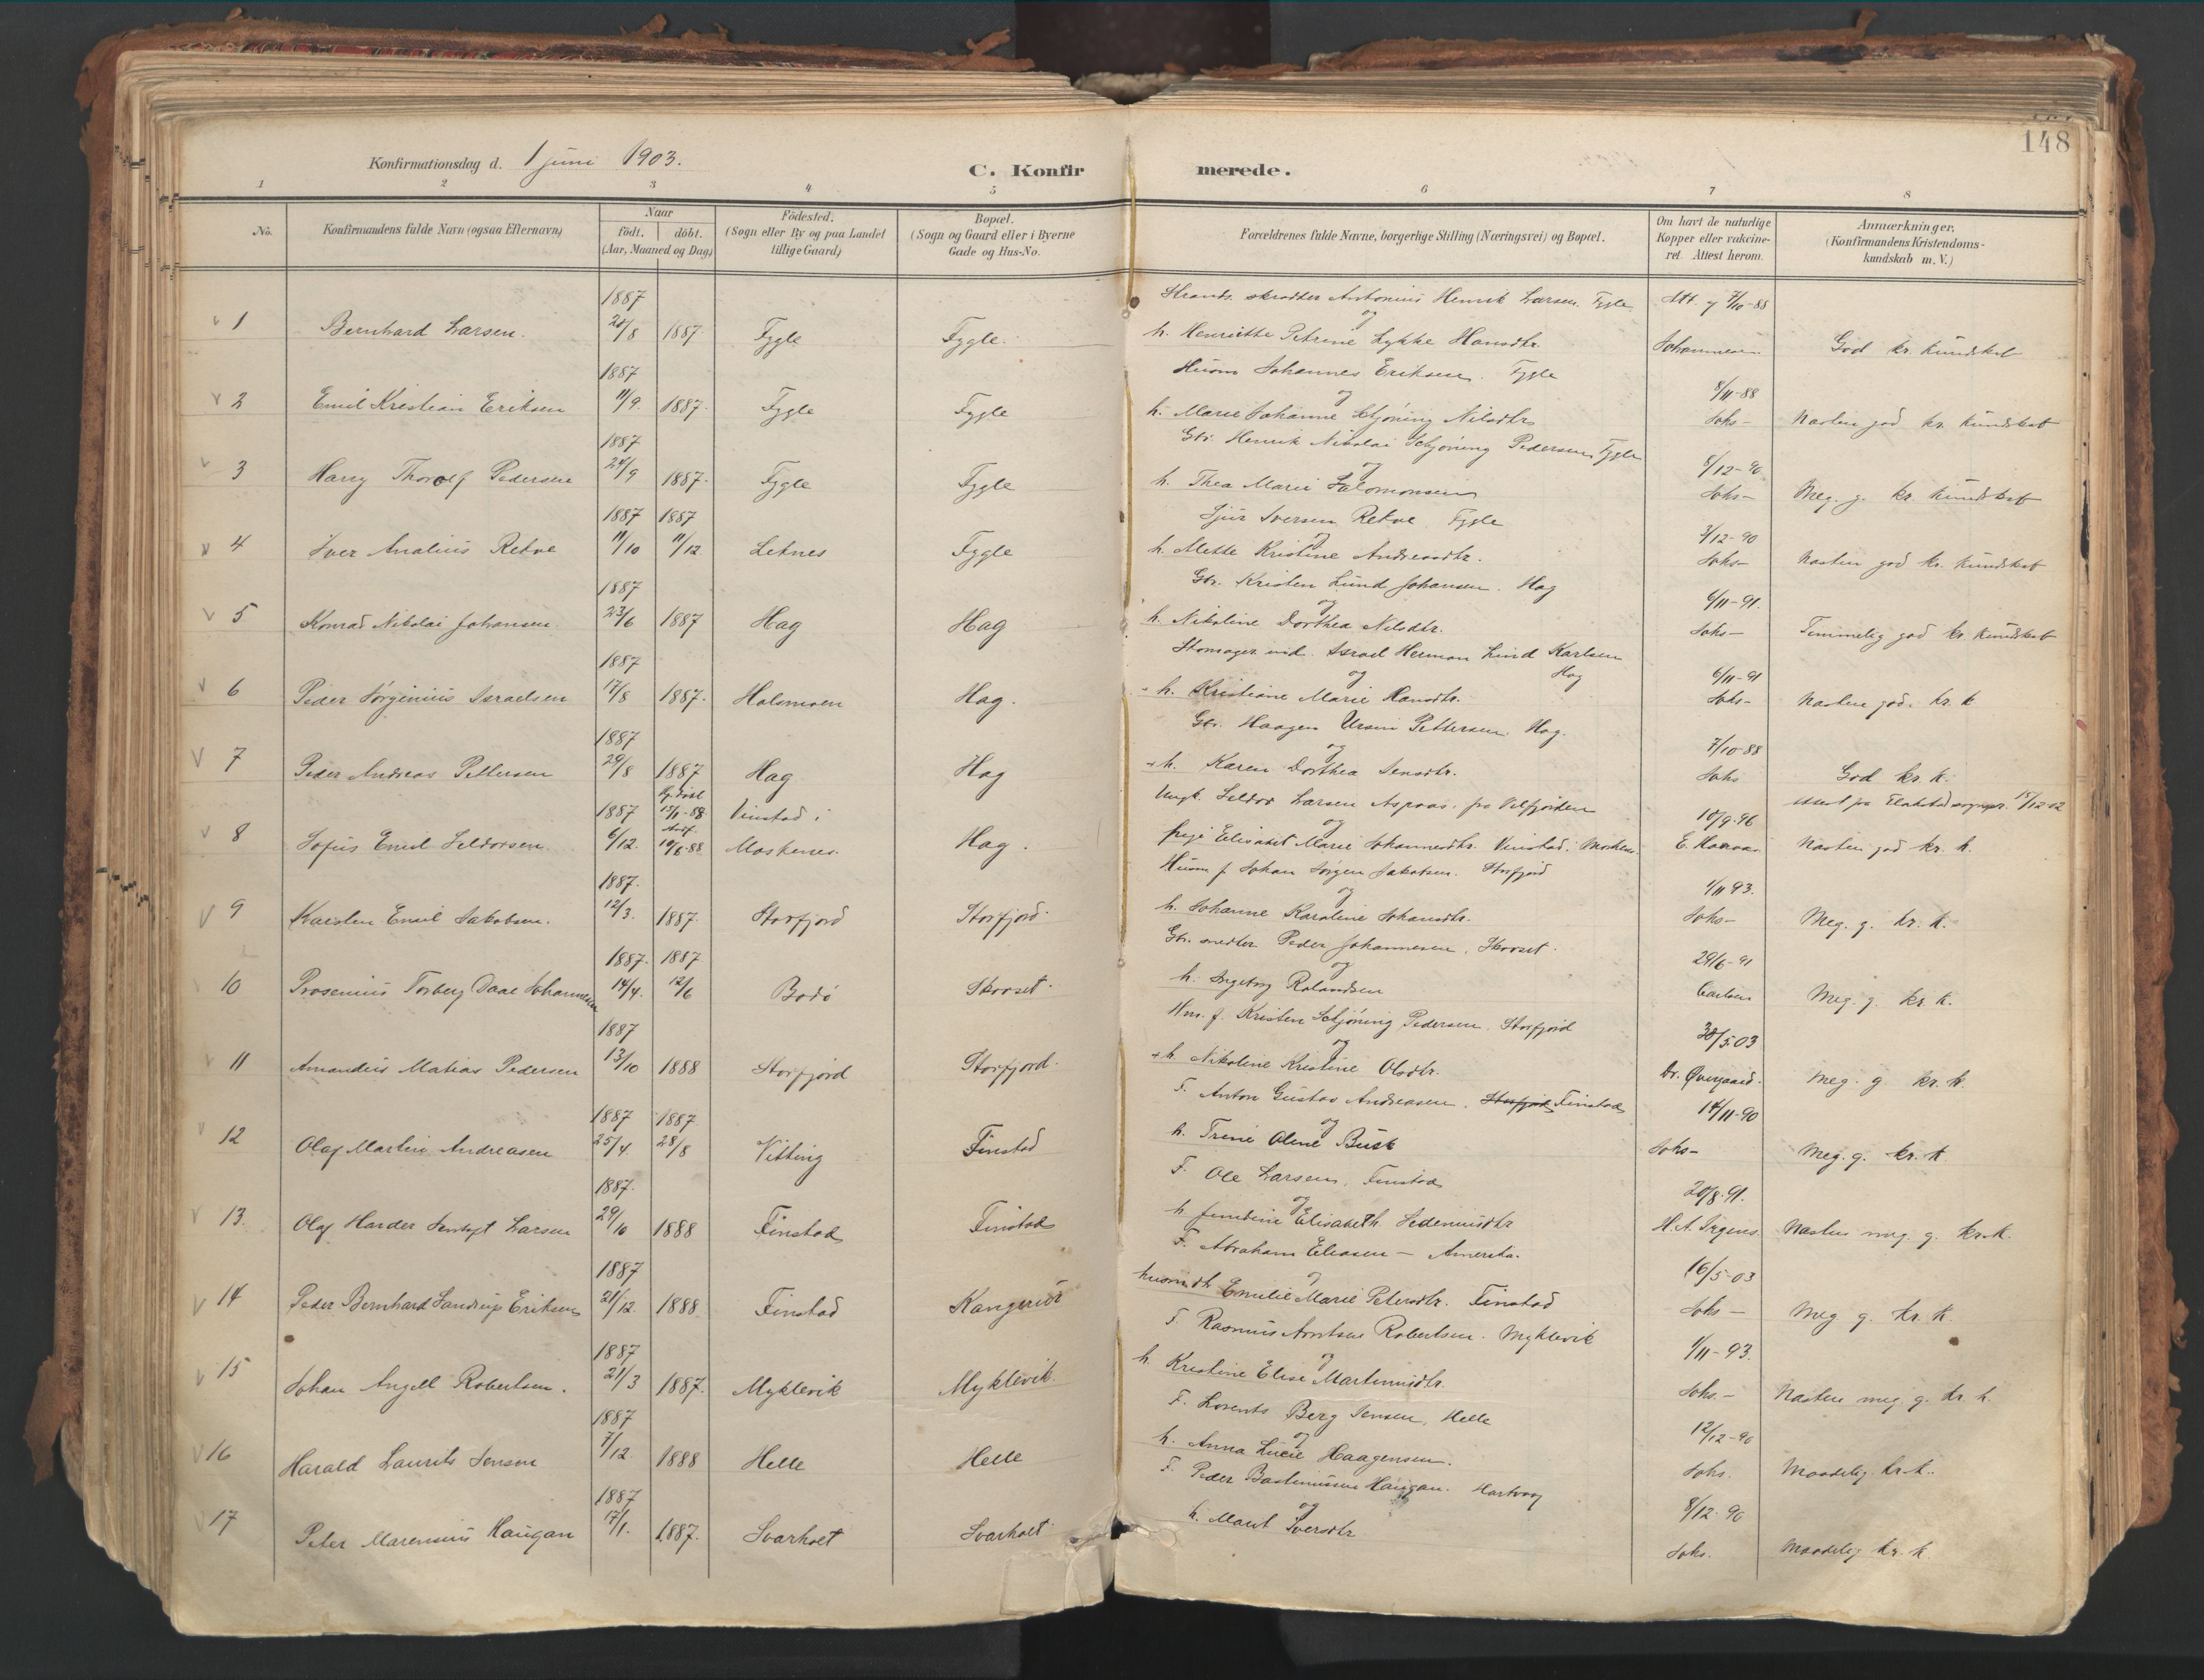 148
Konfirmationsdag d. 1 juni 1903.
C. Konfirmerede.
1 2 3 4 5 6 7 8
No.
Konfirmandens fulde Navn (ogsaa Efternavn)
Naar
födt. döbt.
(Aar, Maaned og Dag)
Födested.
(Sogn eller By og paa Landet
tillige Gaard)
Bopæl.
(Sogn og Gaard eller i Byerne
Gade og Hus-No.
Forældrenes fulde Navne, borgerlige Stilling (Næringsvei) og Bopæl.
Om havt de naturlige
Kopper eller vakcine-
ret. Attest herom.
Anmærkninger.
(Konfirmandens Kristendoms-
kundskab m. V.)
1887 skrædder Antonius Henrik Larsen. Fygle Att. 7/10-88
1 Bernhard Larsen. 28/8 1887 Fygle Fygle. og
h. Henriette Petrine Lykke Hansdtr. Johannesen God kr. kundskab
1887 Husm Johannes Eriksen. Fygle 8/11-88
2 Emil Kristian Eriksen 11/9. 1887. Fygle Fygle og
h. Marie Johanne Schjöning Nilsdtr. Johs- Næsten god kr. kundskab
1887 Gbr. Henrik Nikolai Schjöning Pedersen, Fygle 8/12-90
3 Harry Thorolf Pedersen 24/9 1887. Fygle Fygle og
h. Thea Marie Salomonsen Johs- Meg. g. kr. kundskab
1887 1887 Sjur Iversen Rekve Fygle 3/12-90
4 Iver Analius Rekve 11/10 11/12 Leknes Fygle og
h. Mette Kristine Andreasdtr. Johs- Næsten god kr. kundskab
1887 Gbr. Kristen Lund Johansen. Hag 6/11-91.
5 Konrad Nikolai Johansen. 23/6 1887 Hag Hag og
h. Nikoline Dorthea Nilsdtr. Johs- Temmelig god kr. kundskab
1887 Skomager Israel Herman Lind Karlsen Hag 6/11-91
6 Peder Jörginius Israelsen 17/8 1887. Holsmoen Hag. og
h. Kristiane Marie Hansdtr. Johs- Næsten god. kr. k
1887 Gbr. Haagen Ursin Pettersen. Hag. 7/10-88
7 Peder Andreas Pettersen 29/8 1887 Hag Hag og
h. Karen Dorthea Jensdtr. Johs God kr. k.
1887 15/1-88 Vinstad i Ungk. Seldor Larsen Aspaas. fra Velfjorden 18/9-96
8 Sofus Emil Seldorsen. 6/12. 10/6.88 Moskenes. Hag. og
pige Elisabet Marie Johannesdtr. Vinstad. Moskenes. Næsten god kr. k.
1887. Husm f. Johan Jörgen Jakobsen. Storfjord 1/11 93.
9 Karsten Emil Jakobsen. 12/3. 1887. Storfjord Storfjord. og
h. Johanne Karoline Johansdtr. Johs- Meg. g. kr. k.
1887. 1887 Gbr. snedker Peder Johannesen, Skorset. 29/6-91
10 Prosenius Torberg Daae Johannesen 14/4. 12/6 Bodö Skorset. og
h. Ingeborg Rolandsen Carlsen Meg. g. kr. k.
1887 f. Kristen Schjöning Pedersen, Storfjord 30/5.03
11 Amandus Matias Pedersen 13/10 1888 Storfjord Storfjord. og
h. Nikoline Kristine Olsdtr. Dr. Overgaard. Meg. g kr. k.
1887 1887. F. Anton Gustav Andreasen. Storfjord Finstad 14/11-90
12 Olaf Martin Andreasen 25/4. 28/8 Vitting Finstad og
h. Trine Oline Busk Johs- Meg. g. kr. k
1887. F. Ole Larsen, Finstad 20/8.91.
13. Olaf Harder Larsen 29/10 1888 Finstad Finstad og
h. Elisabeth H. A. Irgens. Næsten meg. g. kr.k.
1887 F. Abraham Eliasen - Amerika. 16/5-03
14 Peder Bernhard Sandrup Eriksen 21/12. 1888 Finstad Kangerur og
Emilie Marie Petersdtr. Finstad Johs- Meg g. kr. k.
1887 F. Rasmus Arntsen Robertsen. Myklevik 1/11-93.
15 Johan Angell Robertsen. 21/3 1887. Myklevik Myklevik. og
h. Kristine Elise Martinusdtr. Johs.- Næsten meg g. kr. k.
1887 F. Lorents Berg Jensen, Helle 12/12-90
16 Harald Laurits Jensen 7/12. 1888 Helle Helle og
h. Anna Lucie Haagensen. Johs. Maadelig kr.k.
1887 F. Peder Bastinussen Haugan. Hartvaag 8/12-90
17 Peter Marensius Haugan 17/1. 1887. Svarholt Svarholt og
h. Marit Iversdtr Johs. Maadelig kr. k.